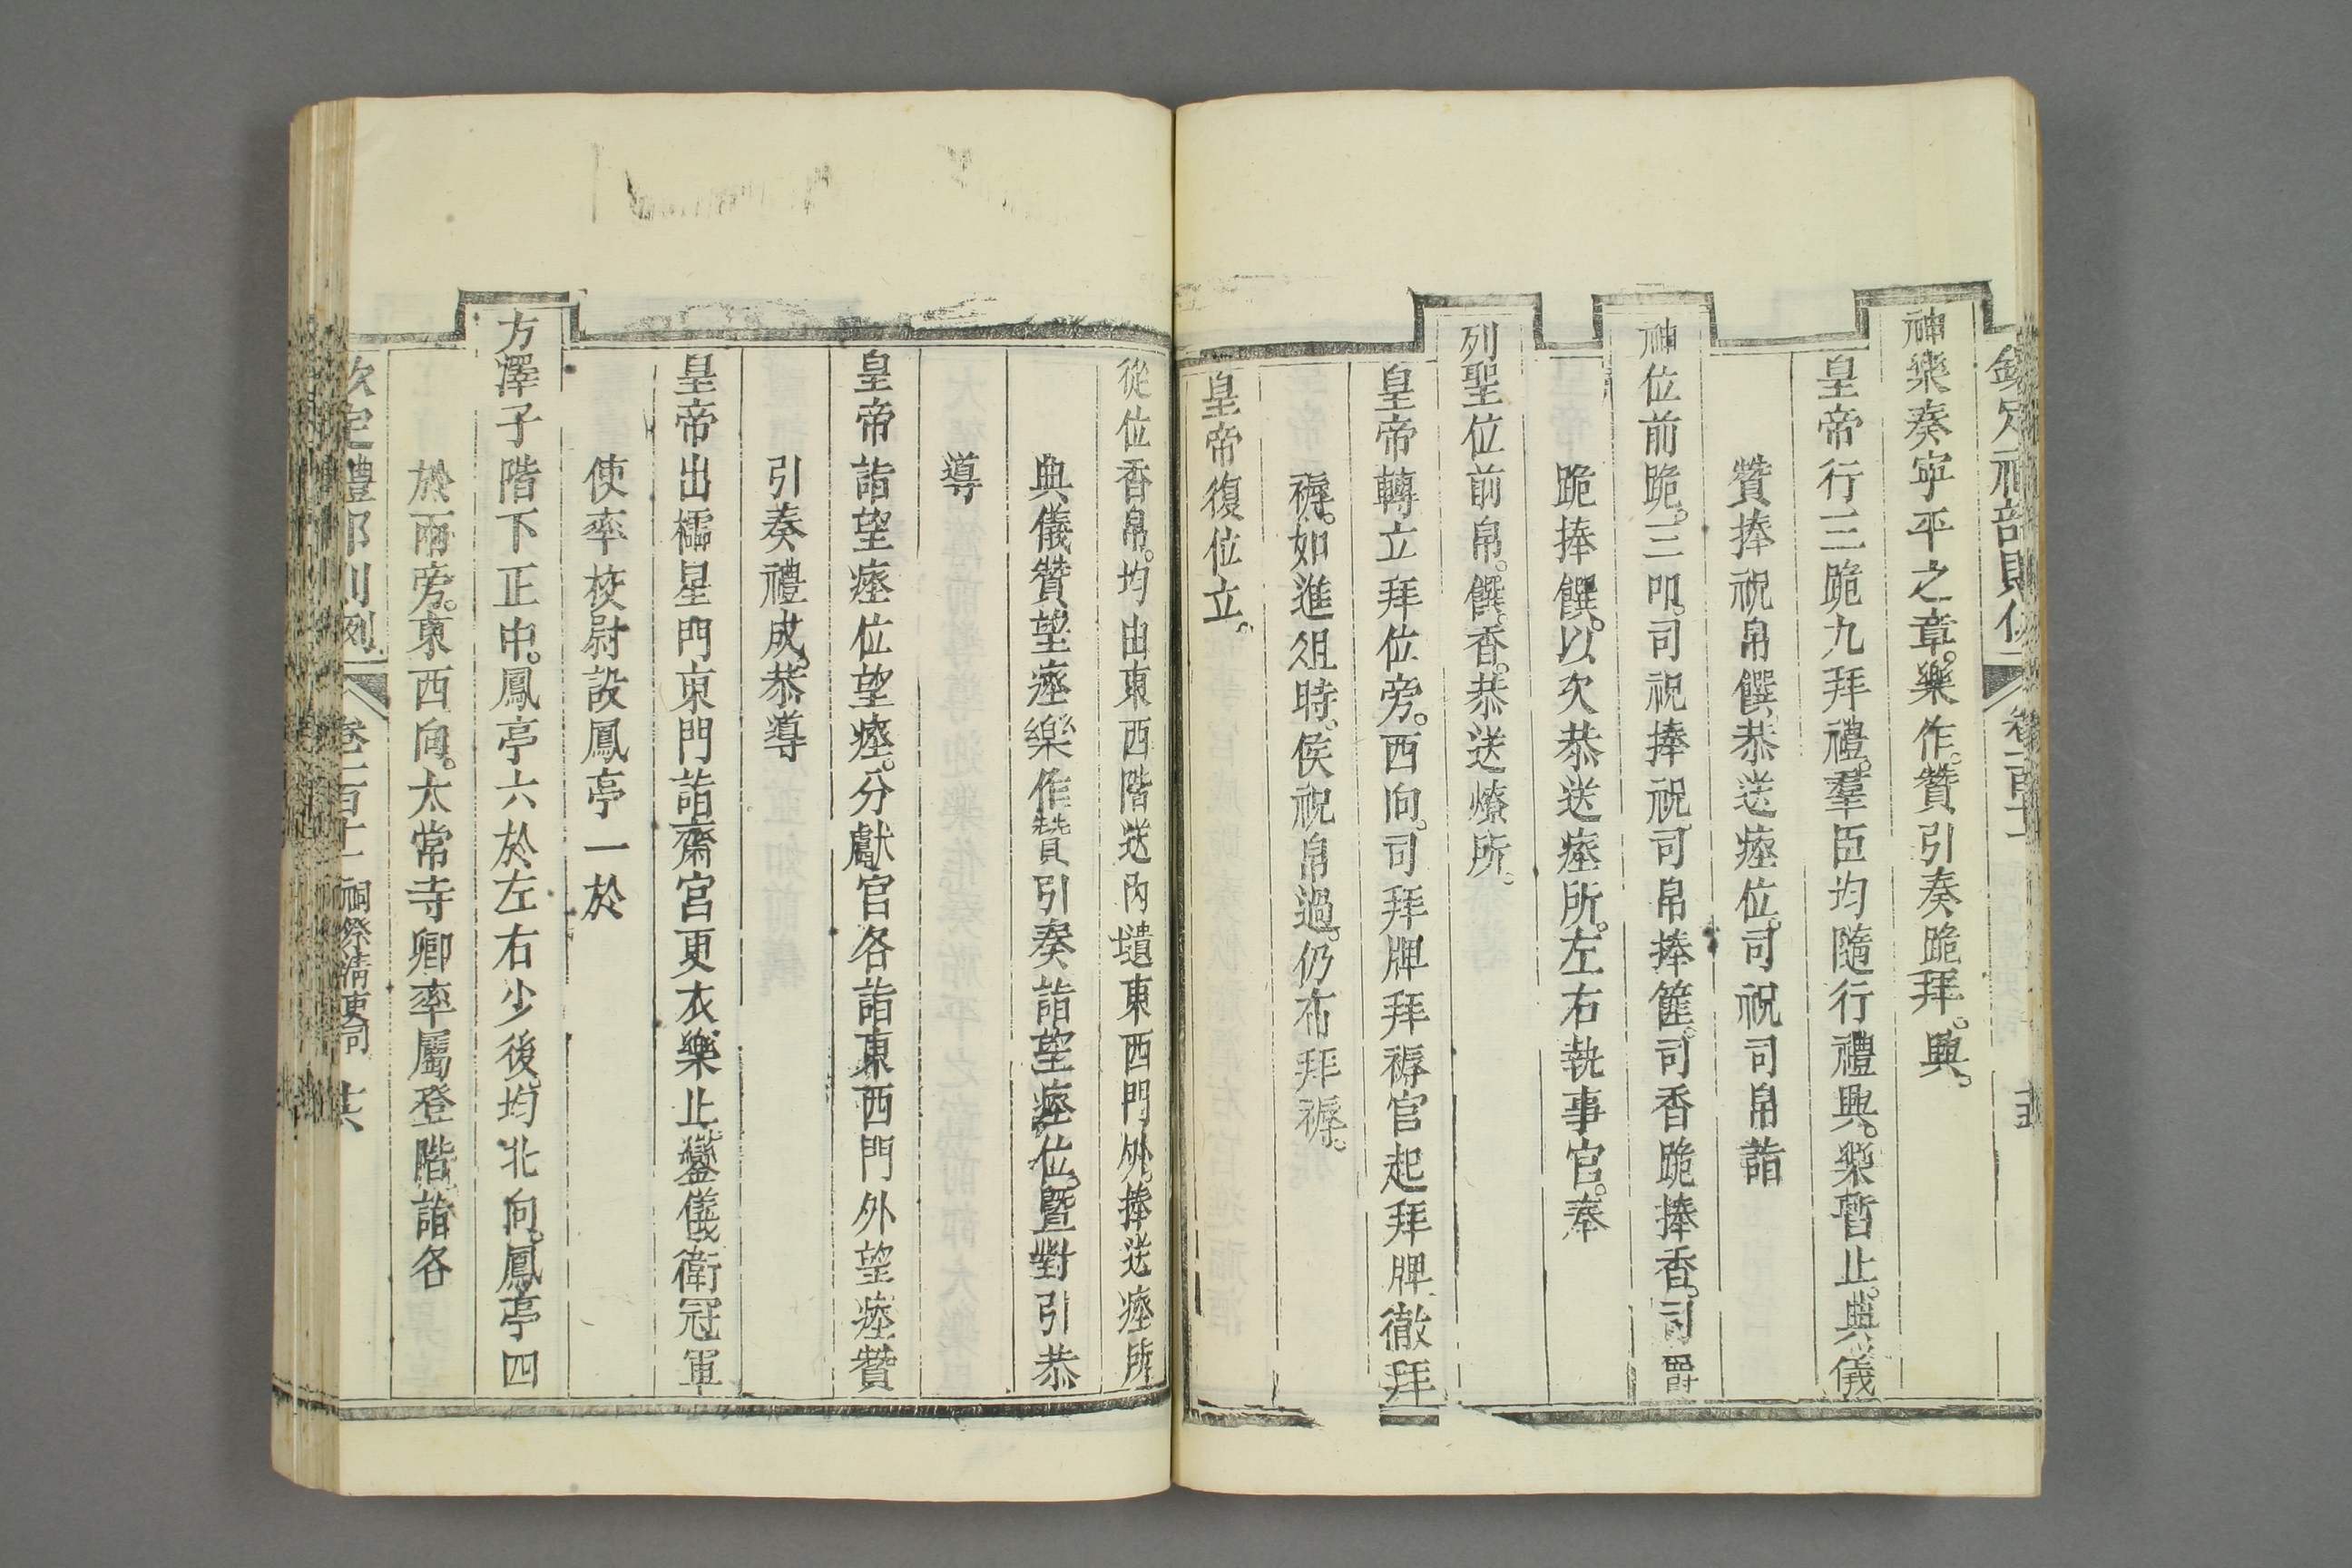 神樂奏寧平之章。樂作。贊引奏跪。拜。興。
皇帝行三跪九拜禮。羣臣均隨行禮興。樂暫止。典儀
贊捧祝帛饌恭送瘞位。司祝司帛詣
神位前跪。三叩。司祝捧祝。司帛捧篚。司香跪捧香。司爵
跪捧饌。以次恭送瘞所。左右執事官。奉
列聖位前帛。饌。香。恭送燎所。
皇帝轉立拜位旁。西向。司拜牌拜褥官起拜牌徹拜
褥。如進俎時。俟祝帛過。仍布拜褥。
皇帝復位立。
從位香帛。均由東西階送內壝東西門外。捧送瘞所
典儀贊望瘞樂作贊引奏詣望瘞位。暨對引恭
導
皇帝詣望瘞位望瘞。分獻官各詣東西門外望瘞贊
引奏禮成。恭導
皇帝出櫺星門東門詣齋宮更衣樂止鑾儀衛冠軍
使率校尉設鳳亭一於
方澤子階下正中。鳳亭六於左右少後。均北向。鳳亭四
於兩旁。東西向。太常寺卿率屬登階詣各
欽定禮部則例 卷二百十一 祠祭清吏司 十六